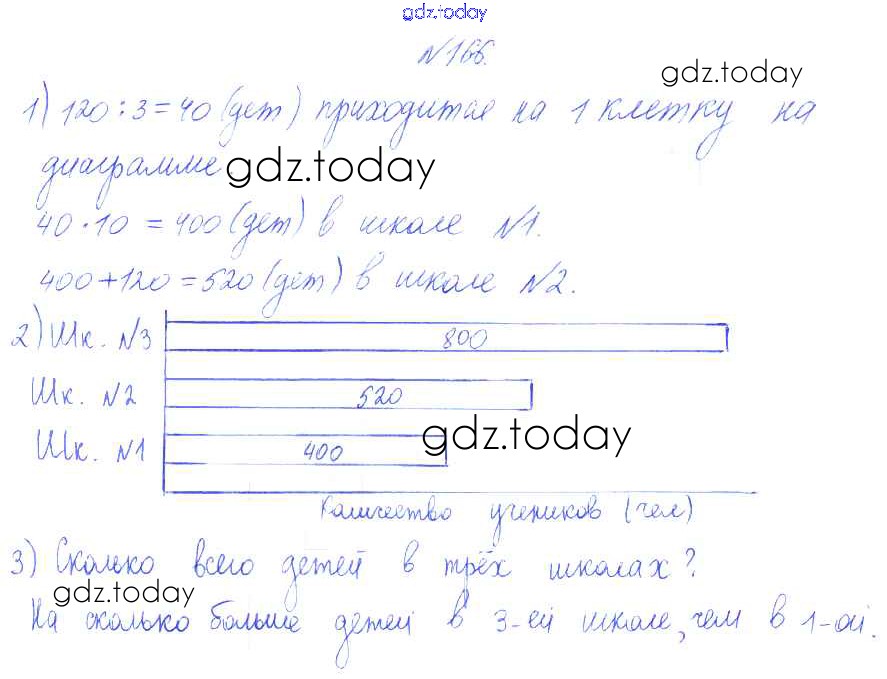 gdz.today
№166.
gdz.today
1) 120 : 3 = 40 (дет) приходится на 1 клетку на
диаграмме.
gdz.today
40 · 10 = 400 (дет) в школе №1.
400 + 120 = 520 (дет) в школе №2.
2) Шк. №3 800
Шк. №2 520
Шк. №1 400
gdz.today
Количество учеников (чел)
3) Сколько всего детей в трёх школах?
gdz.today
На сколько больше детей в 3-ей школе, чем в 1-ой.